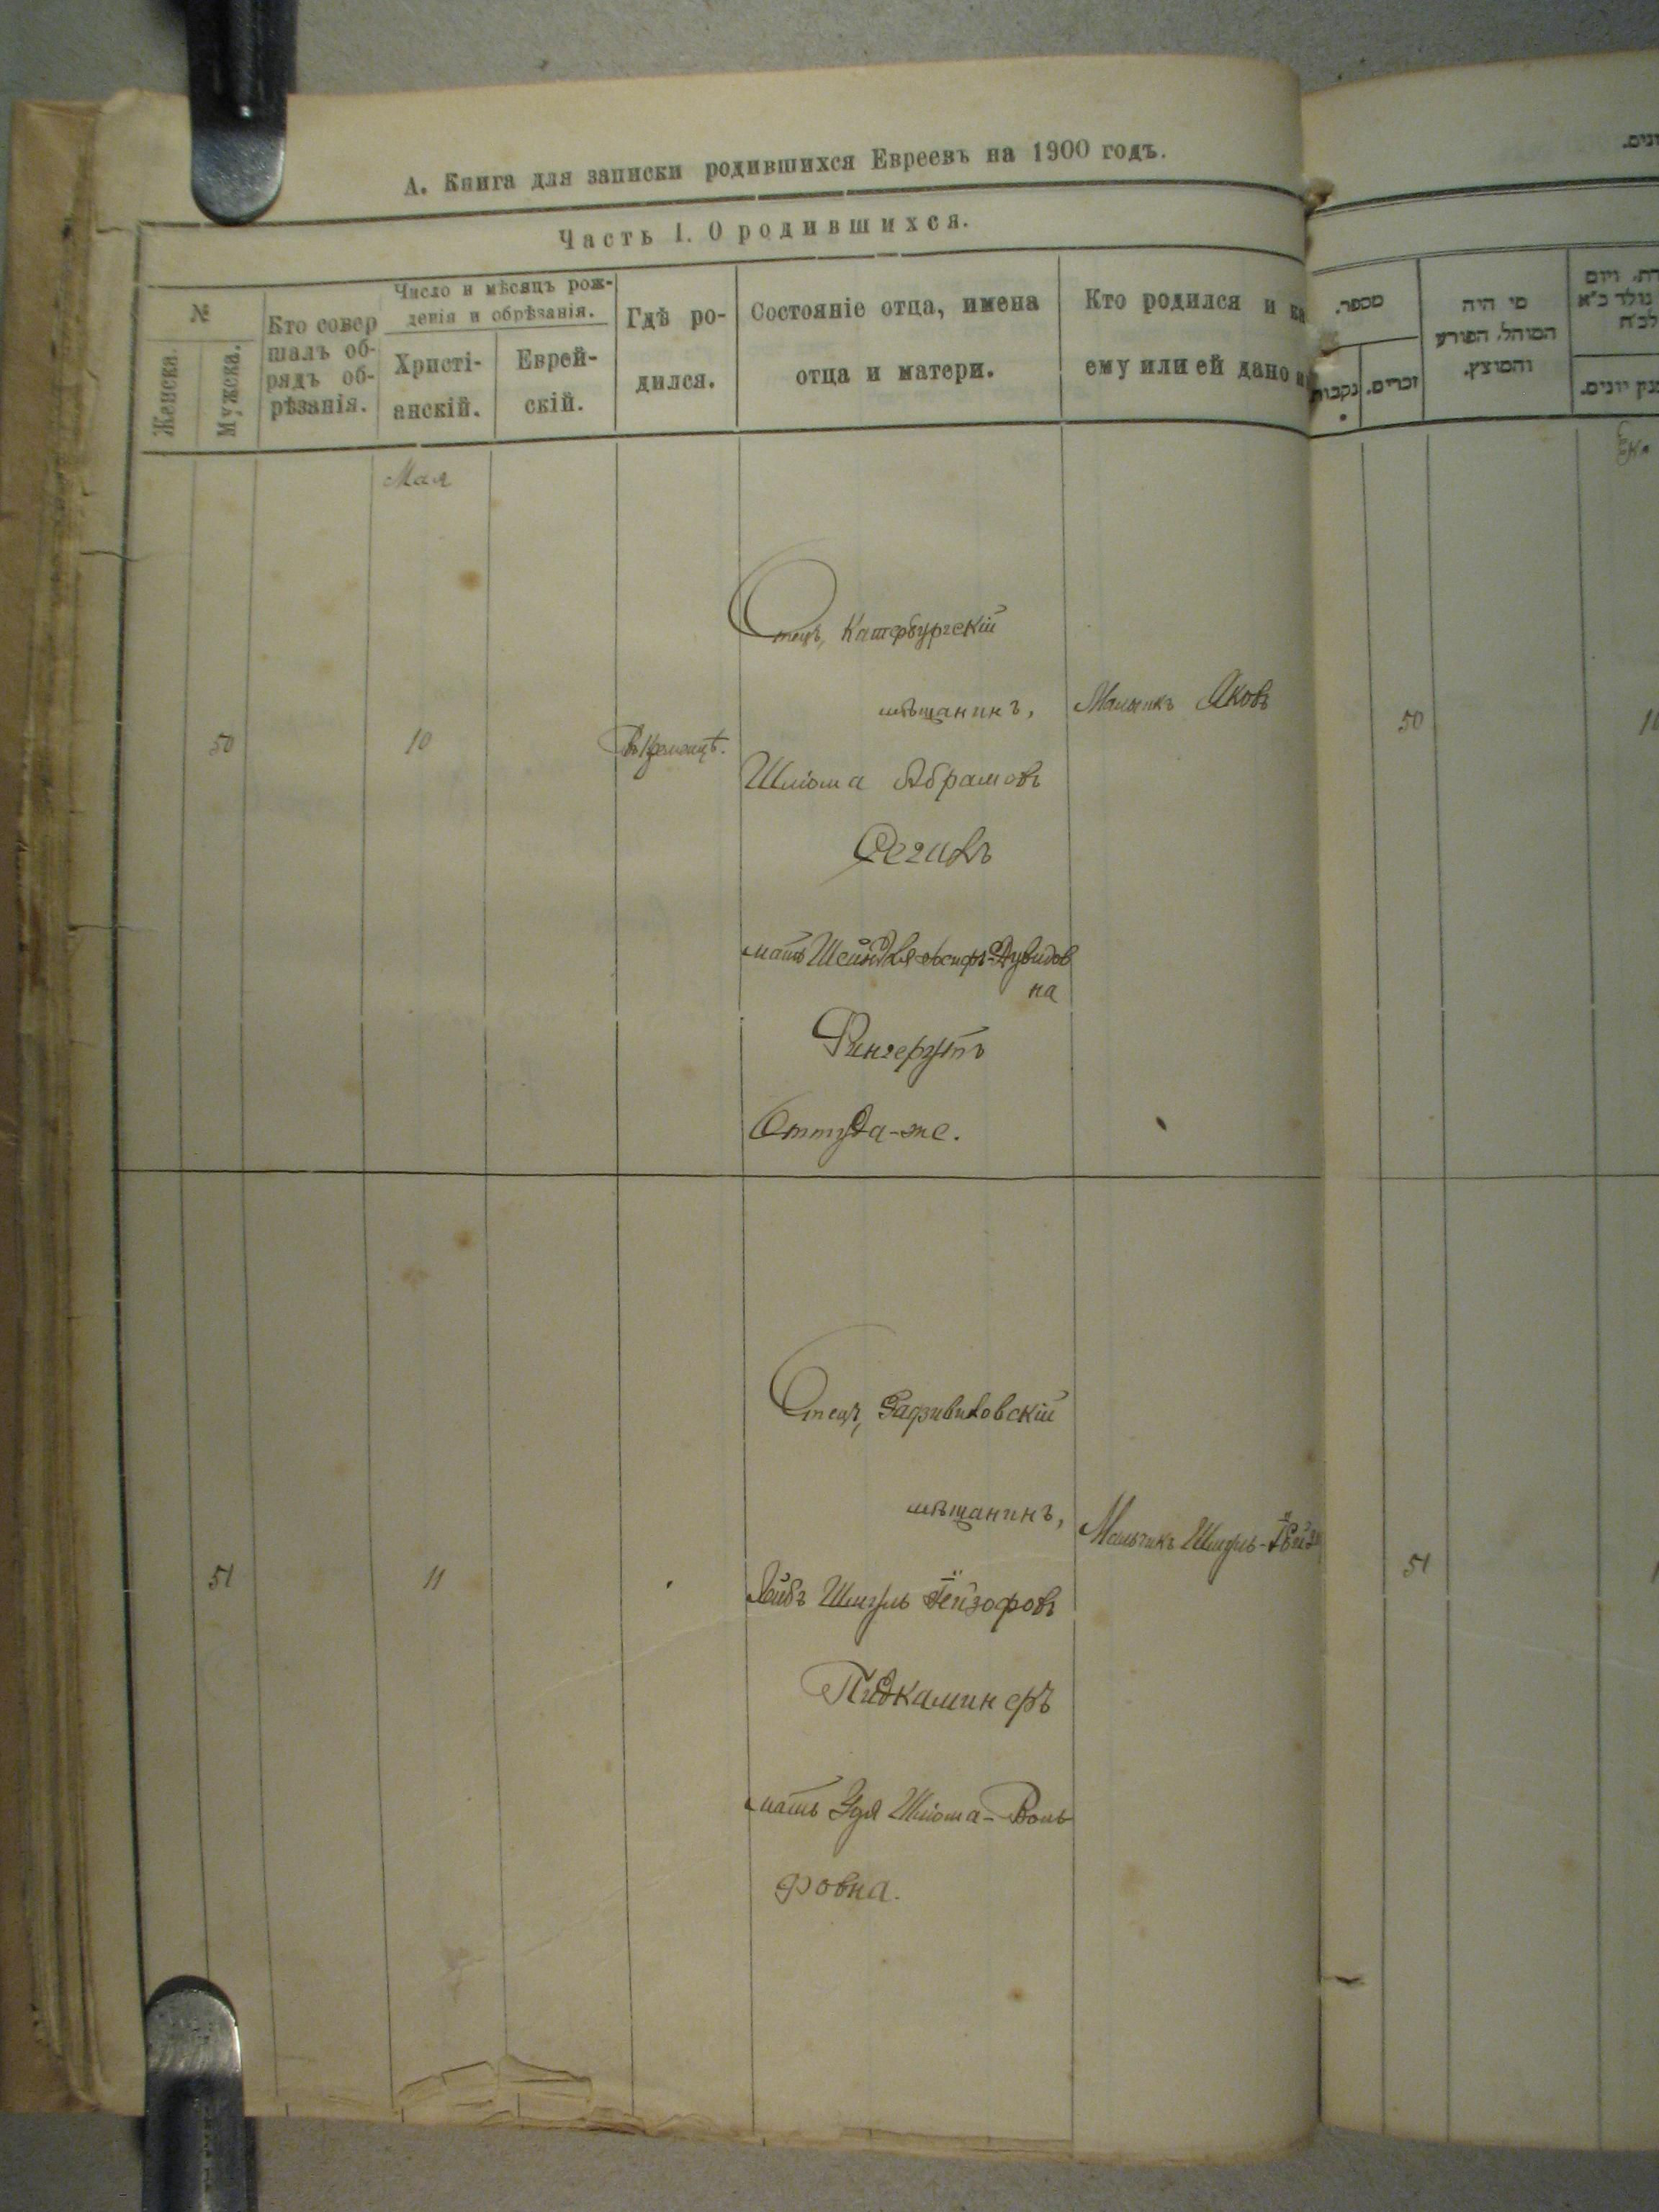 А. Книга для записки родившихся Евреевъ на 1900 годъ.
Часть I. О родившихся.
№
Женска.
Мужска.
Кто совер
шалъ об-
рядъ об-
рѣзанія.
Число и мѣсяцъ рож-
денія и обрѣзанія.
Христі-
анскій.
Еврей-
скій.
Гдѣ ро-
дился.
Состояніе отца, имена
отца и матери.
Кто родился и
ему или ей дано
Мая
50
10
Отецъ, Катербургскій
мѣщанинъ,
Шліома Абрамовъ
мать Шейндля Дувидов
на
Рингерутъ
Оттуда-же.
Мальчикъ Яковъ
51
11
Отецъ, Радзивиловскій
мѣщанинъ,
Лейбъ Шмуль
Пидкаминеръ
мать Удя Шліома-Воль
фовна.
Мальчикъ Шмуль-
מספר.
נקבות
זכרים.
מי היה
המוהל, הפורע
והמוצץ.
50
51